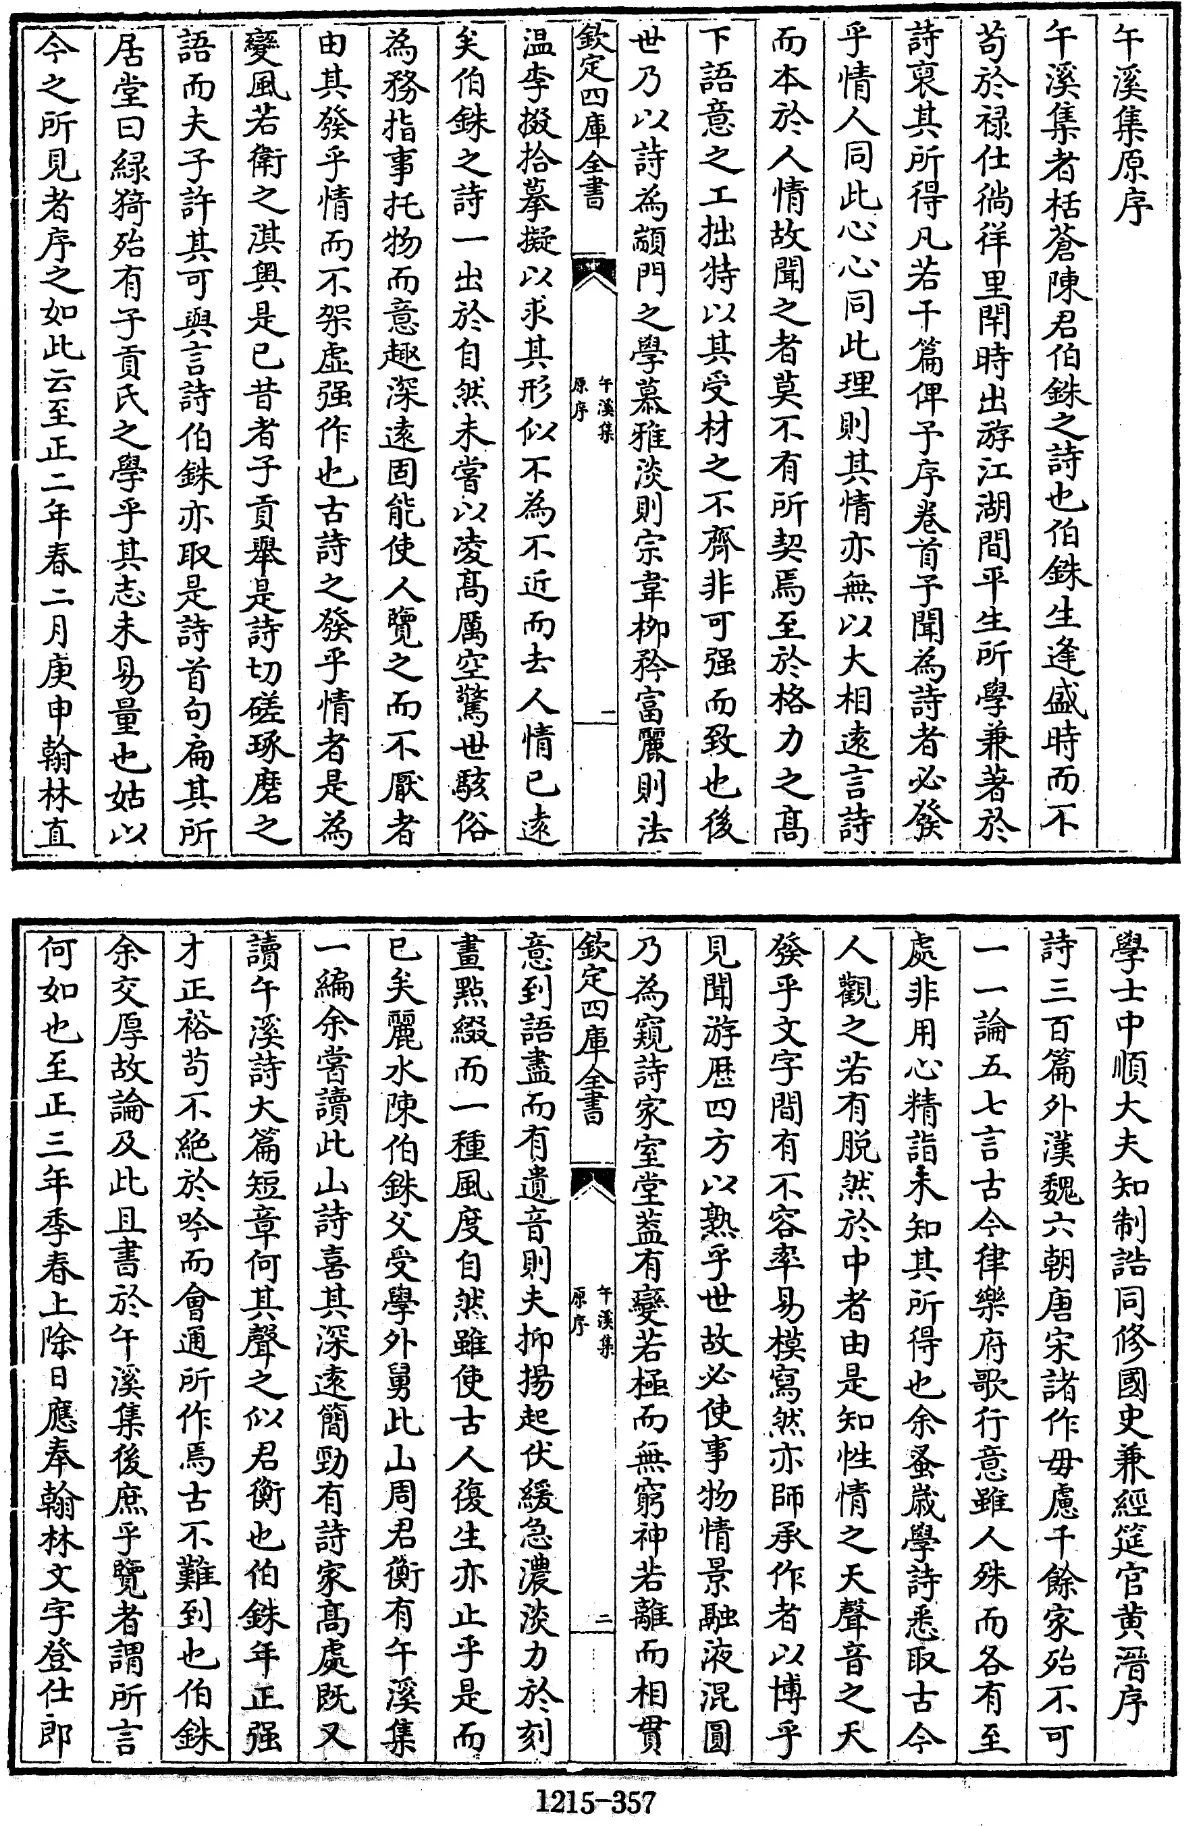 午溪集原序
午溪集者栝蒼陳君伯銖之詩也伯銖生逢盛時而不
茍於禄仕徜徉里閈時出㳺江湖間平生所學兼著於
詩裒其所得凡若干篇俾予序卷首予聞為詩者必發
乎情人同此心心同此理則其情亦無以大相逺言詩
而本於人情故聞之者莫不有所契焉至於格力之髙
下語意之工拙特以其受材之不齊非可强而致也後
世乃以詩為顓門之學慕雅淡則宗韋柳矜富麗則法
欽定四庫全書
午溪集
原序
一
温李掇拾摹擬以求其形似不為不近而去人情已逺
矣伯銖之詩一出於自然未嘗以凌髙厲空驚世駭俗
為務指事托物而意趣深逺固能使人覽之而不厭者
由其發乎情而不架虚强作也古詩之發乎情者是為
變風若衛之淇奥是已昔者子貢舉是詩切磋琢磨之
語而夫子許其可與言詩伯銖亦取是詩首句扁其所
居堂曰緑猗殆有子貢氏之學乎其志未易量也姑以
今之所見者序之如此云至正二年春二月庚申翰林直
學士中順大夫知制誥同修國史兼經筵官黄溍序
詩三百篇外漢魏六朝唐宋諸作毋慮千餘家殆不可
一一論五七言古今律樂府歌行意雖人殊而各有至
處非用心精詣未知其所得也余蚤嵗學詩悉取古今
人觀之若有脱然於中者由是知性情之天聲音之天
發乎文字間有不容率易模寫然亦師承作者以博乎
見聞游歴四方以熟乎世故必使事物情景融液混圓
乃為窺詩家室堂葢有變若極而無窮神若離而相貫
欽定四庫全書
午溪集
原序
二
意到語盡而有遺音則夫抑揚起伏緩急濃淡力於刻
畫㸃綴而一種風度自然雖使古人復生亦止乎是而
已矣麗水陳伯銖父受學外舅此山周君衡有午溪集
一編余嘗讀此山詩喜其深逺簡勁有詩家髙處既又
讀午溪詩大篇短章何其聲之似君衡也伯銖年正强
才正裕茍不絶於吟而會通所作焉古不難到也伯銖
余交厚故論及此且書於午溪集後庶乎覽者謂所言
何如也至正三年季春上除日應奉翰林文字登仕郎
1215-357